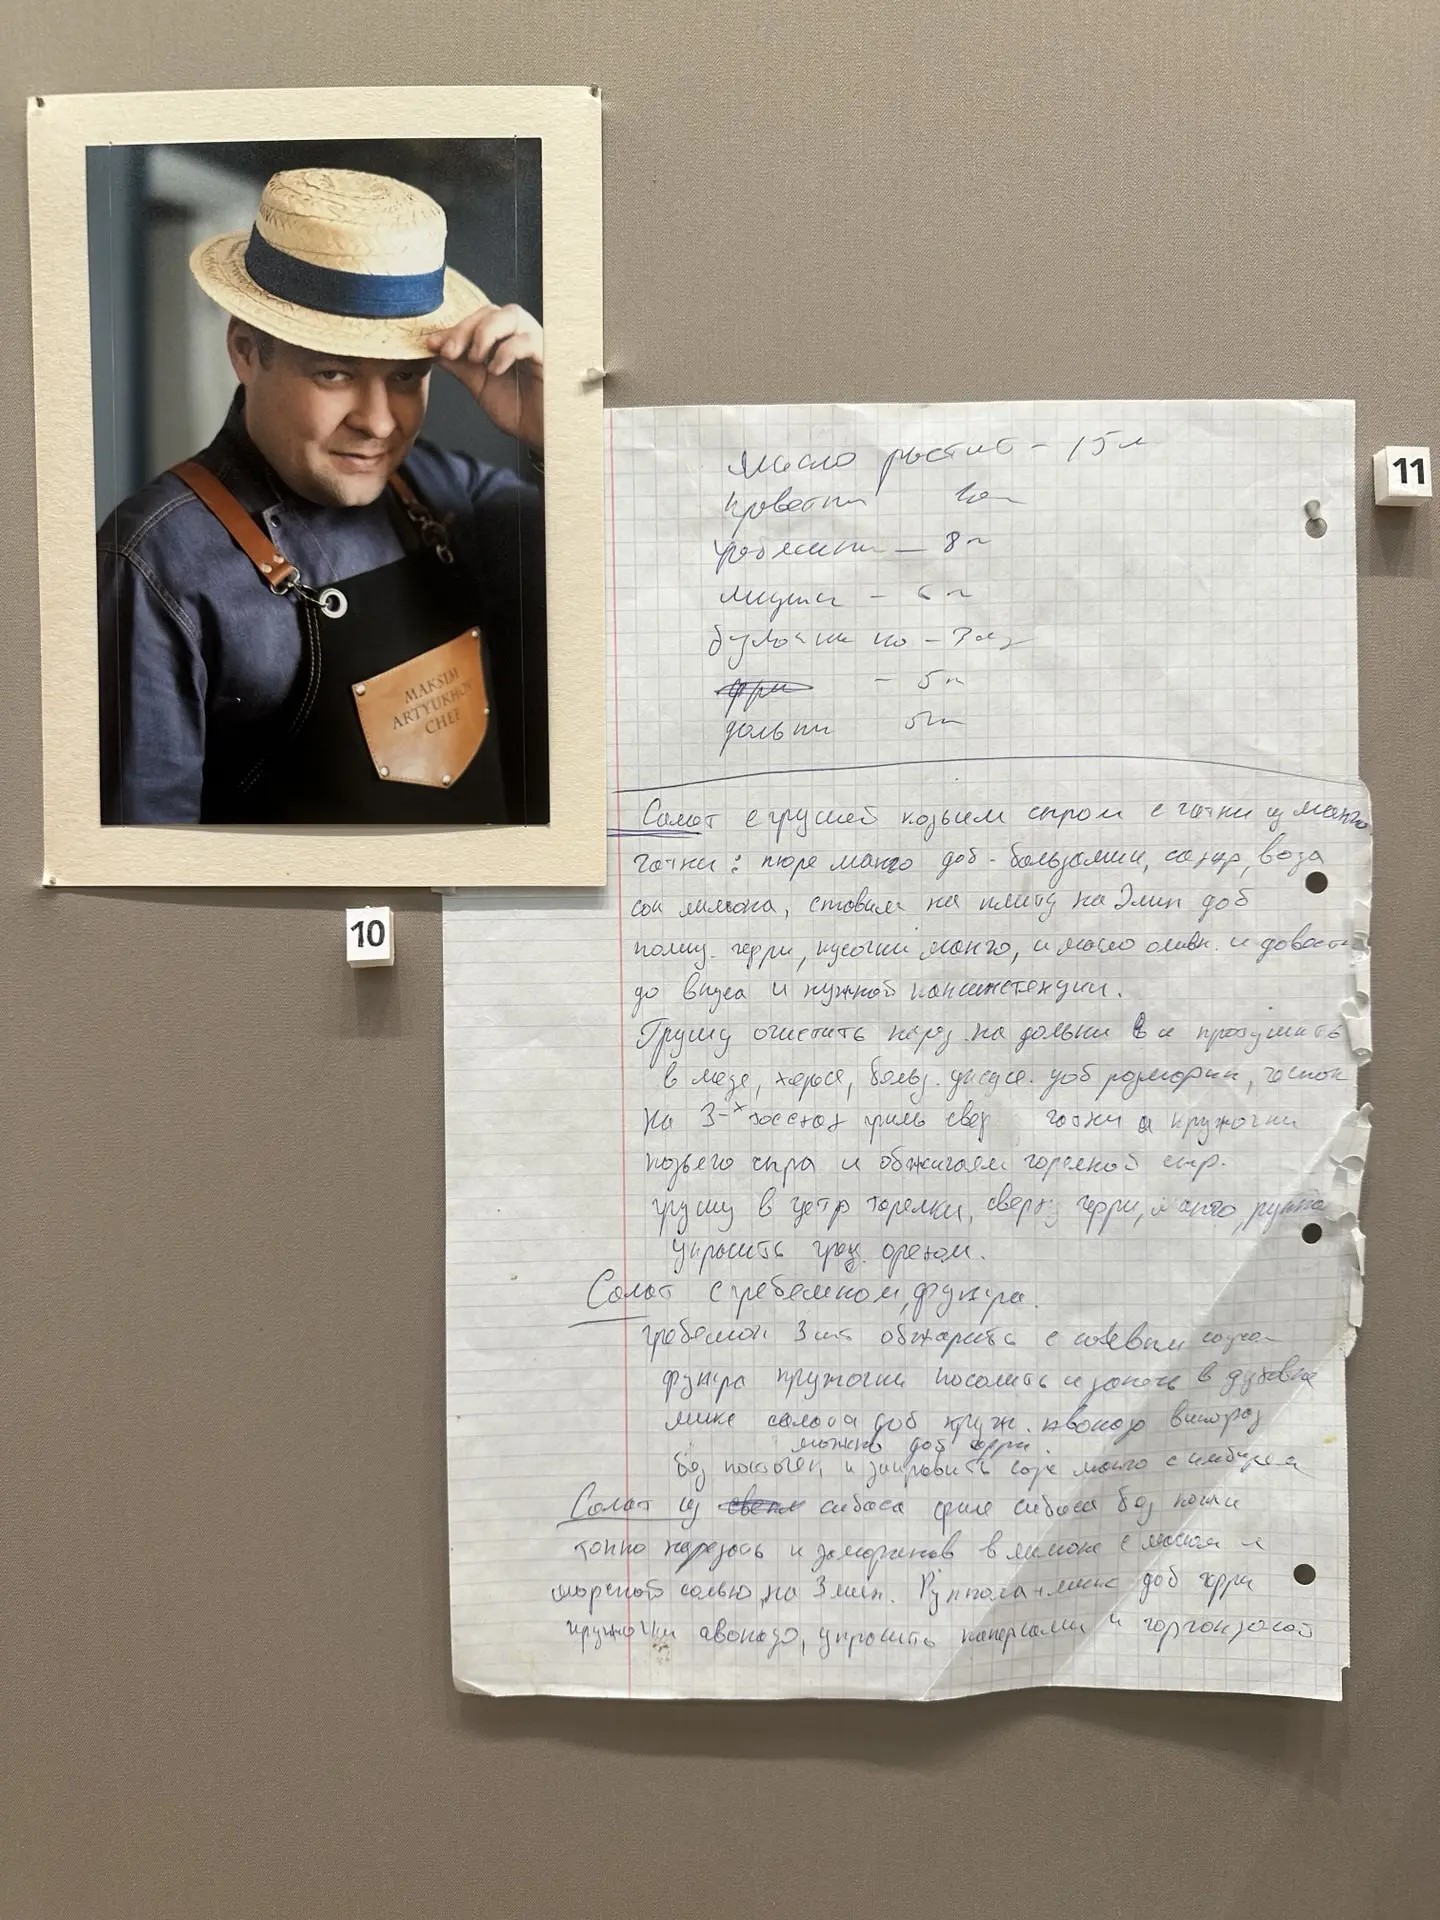 MAKSIM
ARTYUKHOV
CHEF
10
11
Масло растит - 15 л
креветки
- 8 п
мидии - 6 п
булочки
фри - 5 п
дольки 5 п
Салат с грушей козьим сыром с чатни из манго
чатни: пюре манго доб - бальзамик, сахар, вода
сок лимона, ставим на плиту на 3 мин доб
черри, кусочки манго, и масло оливк. и довести
до вкуса и нужной консистенции.
Грушу очистить нарез. на дольки и
в меде, хересе, бальз. уксусе. доб розмарин, чеснок
на 3-х тостах гриль сверх чатни и кружочки
козьего сыра и обжигаем горелкой сыр.
грушу в центр тарелки, сверху черри, манго, руккола
украсить грец. орехом.
Салат с гребешком, фунчоза.
гребешок 3 шт обжарить с соевым соусом
кружочки посолить и запечь в духовке
микс салата доб круж. авокадо виноград
можно доб черри.
без косточек и заправить соус манго с имбирем
Салат из сибаса филе сибаса без кожи
тонко нарезать и замариновав в лимоне с маслом и
морской солью на 3 мин. Руккола+микс доб черри
кружочки авокадо, украсить каперсами и горгонзолой